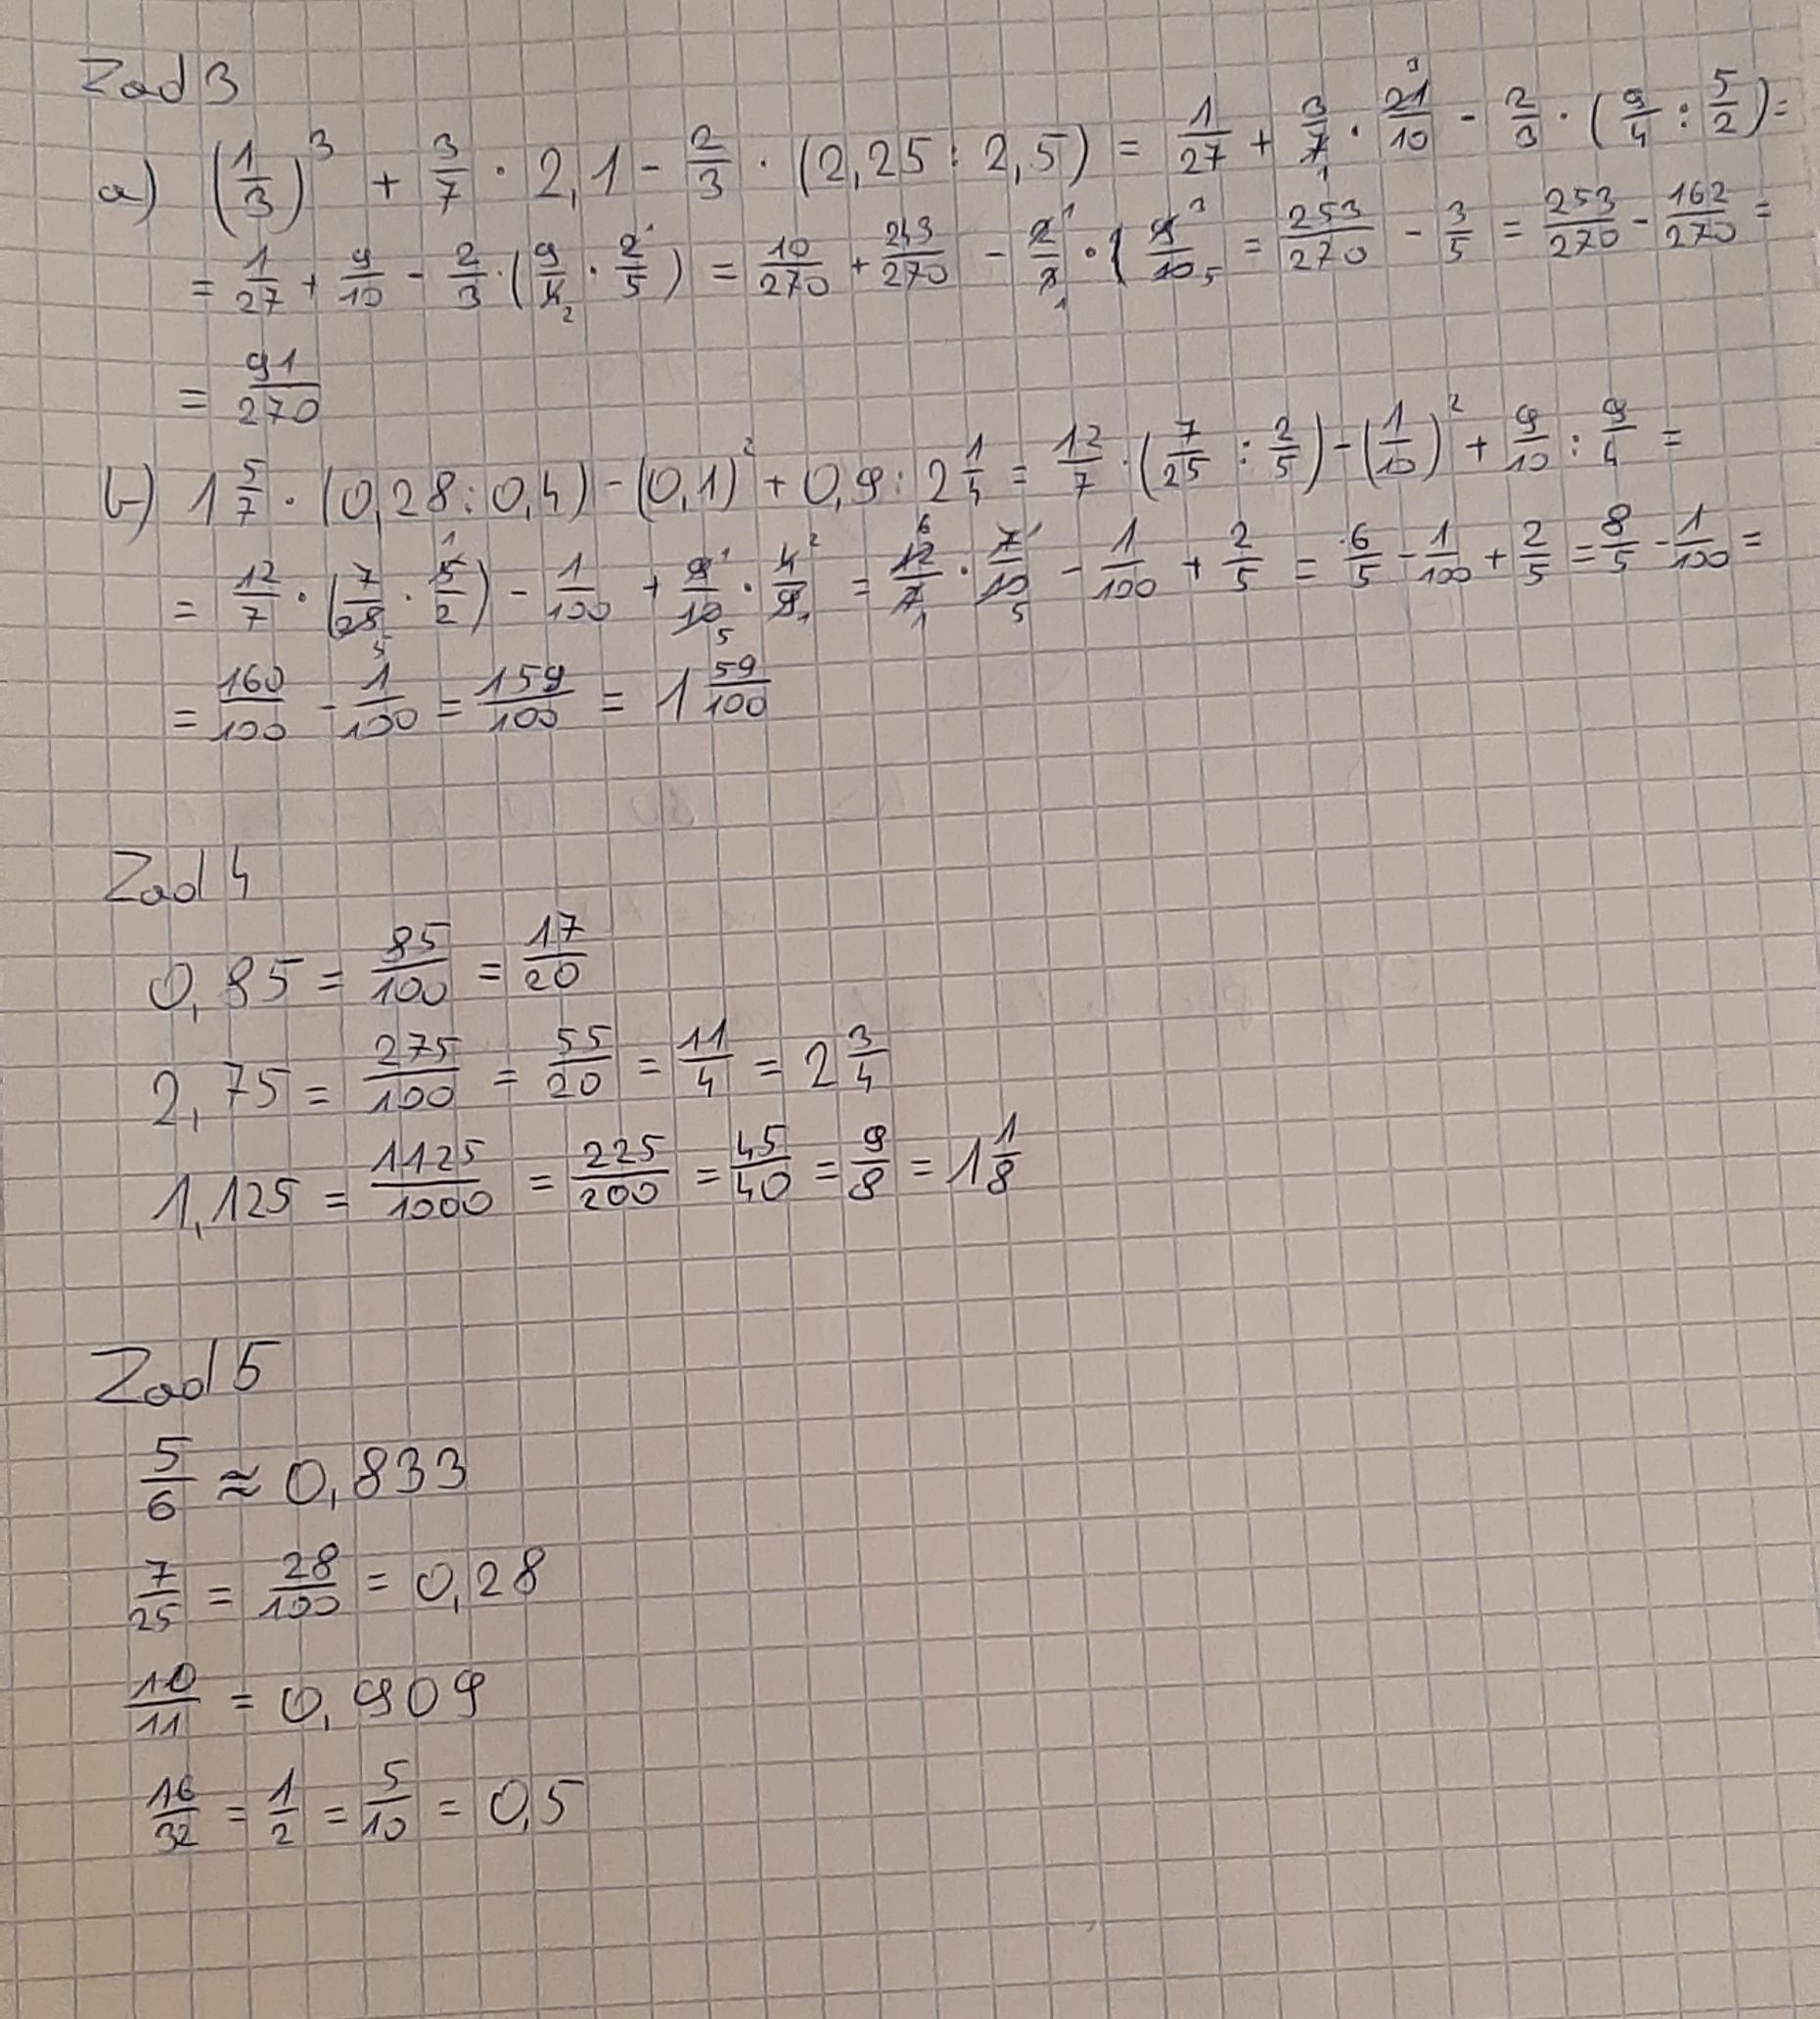 Zad 3
a) (1/3)^3 + 3/7 · 2,1 - 2/3 · (2,25 : 2,5) = 1/27 + 3/7 · 21/10 - 2/3 · (9/4 : 5/2) =
= 1/27 + 9/10 - 2/3 · (9/4 · 2/5) = 10/270 + 243/270 - 2/3 · (9/10 = 253/270 - 3/5 = 253/270 - 162/270 =
= 91/270
b) 1 5/7 · (0,28 : 0,4) - (0,1)^2 + 0,9 : 2 1/4 = 12/7 · (7/25 : 2/5) - (1/10)^2 + 9/10 : 9/4 =
= 12/7 · (7/25 · 5/2) - 1/100 + 9/10 · 4/9 = 12/7 · 7/10 - 1/100 + 2/5 = 6/5 - 1/100 + 2/5 = 8/5 - 1/100 =
= 160/100 - 1/100 = 159/100 = 1 59/100
Zad 4
0,85 = 85/100 = 17/20
2,75 = 275/100 = 55/20 = 11/4 = 2 3/4
1,125 = 1125/1000 = 225/200 = 45/40 = 9/8 = 1 1/8
Zad 5
5/6 ≈ 0,833
7/25 = 28/100 = 0,28
10/11 = 0,909
16/32 = 1/2 = 5/10 = 0,5